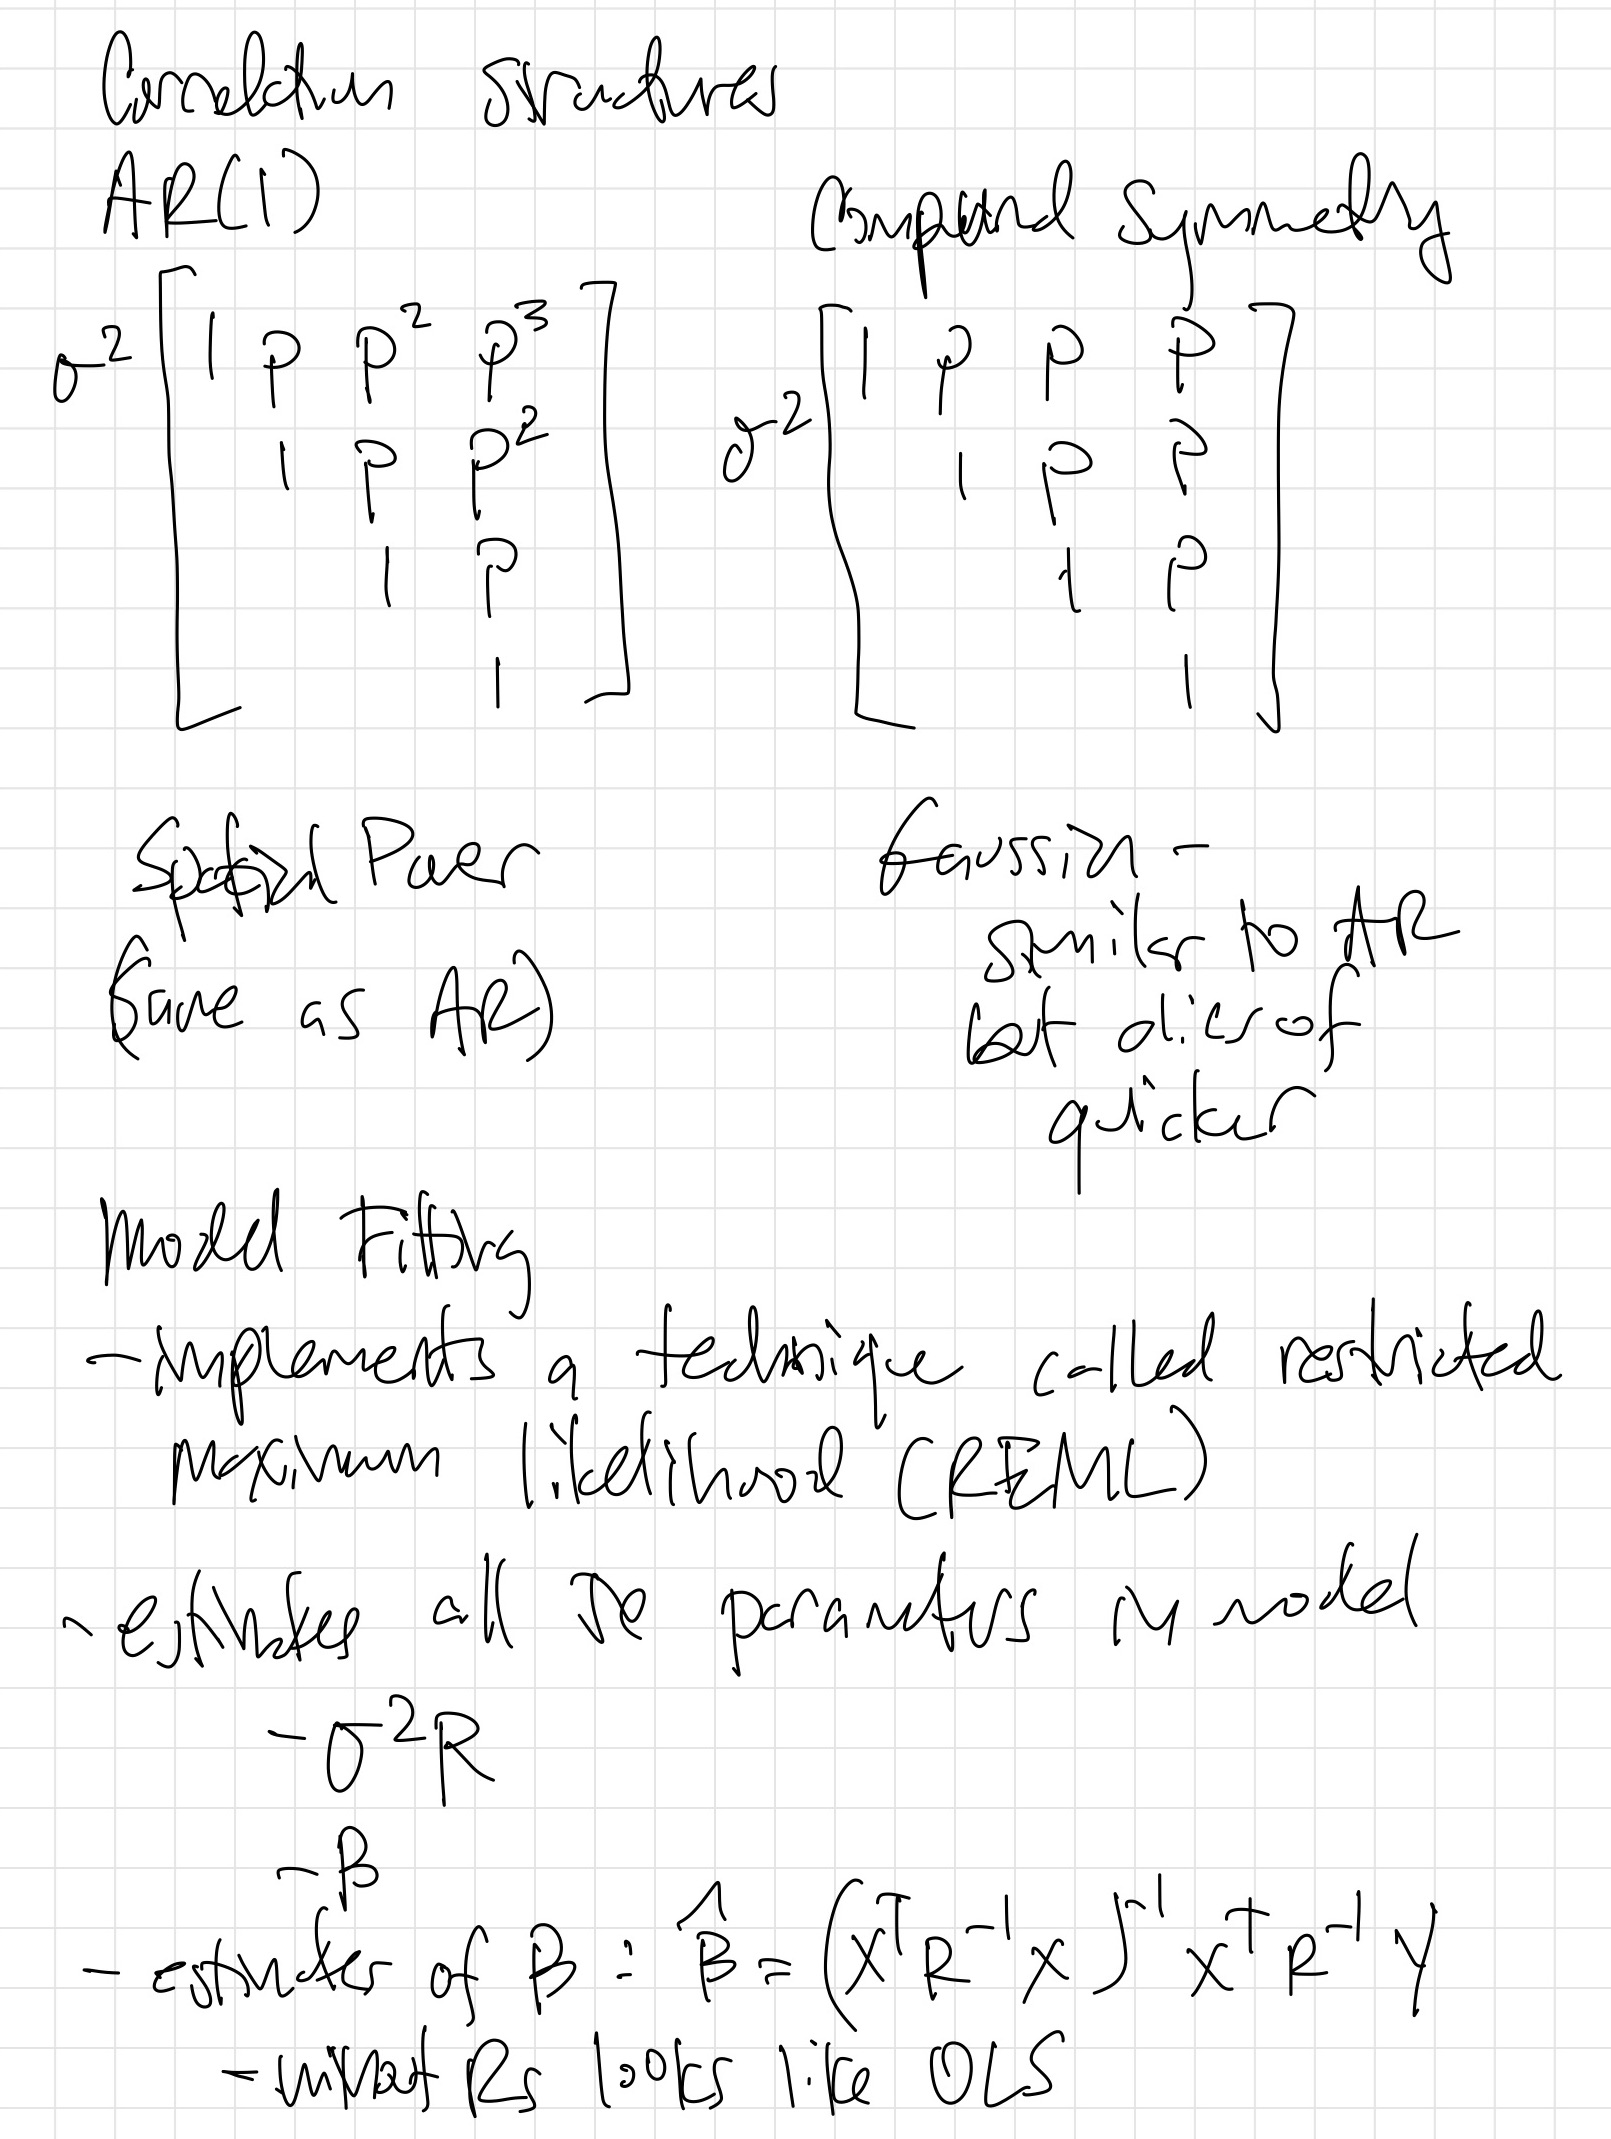 Correlation Structures
AR(1)
Compound Symmetry
σ² [ 1 ρ ρ² ρ³
1 ρ ρ²
1 ρ
1 ]
σ² [ 1 ρ ρ ρ
1 ρ ρ
1 ρ
1 ]
Spatial Power
(Same as AR)
Gaussian -
similar to AR
but dies of
quicker
Model Fitting
- implements a technique called restricted
maximum likelihood (REML)
- estimates all the parameters in model
- σ²R
- β
- estimates of β : β̂ = (XᵀR⁻¹X)⁻¹XᵀR⁻¹Y
- without Rs looks like OLS